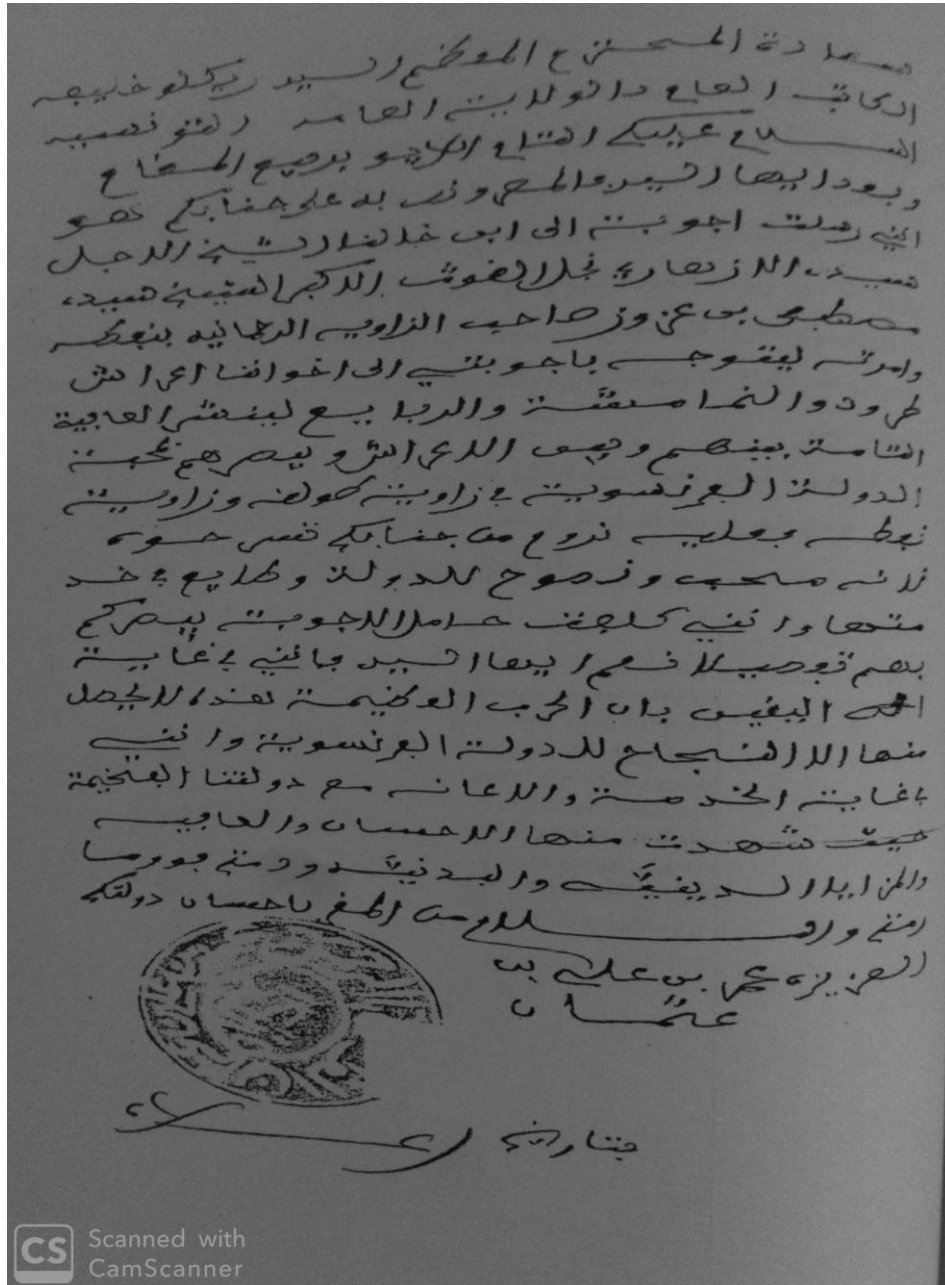 سعادة المحترم المعظم السيد خليفة
الكاتب العام بالولاية العامة التونسية
السلام عليكم التام الكامل بجميع المقام
وبعد ايها السيد والمعروض به على جنابكم هو
انني رسلت اجوبة الى ابن خالنا الشيخ الاجل
سيد، الازهاري نجل الغوث الاكبر الشيخ سيد،
مصطفى بن عزوز صاحب الزاوية الرحمانية بنفطه
وامرته ليتوجه باجوبتي الى اخواننا اعراش
طرود والنمامشة والربايع لينشر العافية
التامة بينهم وبين الاعراش ويبصرهم بمحبة
الدولة الفرنسوية في زاوية طولقه وزاوية
نفطه فعليه نروم من جنابكم
لانه محب ونصوح للدولة وطايع في خد
متها وانني كلفت حامل الاجوبة يبصركم
بهم توصيلا نعم ايها السيد فانني في غاية
اليقين بان الحرب العظيمة هذه، لا يحصل
منها الا النجاح للدولة الفرنسوية وانني
في غاية الخدمة والاعانة مع دولتنا الفخيمة
حيث شهدت منها الاحسان والعافيه
والمزايا الدينية والبدنية ودمتم
دمتم والسلام من المقر باحسان دولتكم
العزيزة، محمد بن علي بن
عثمان